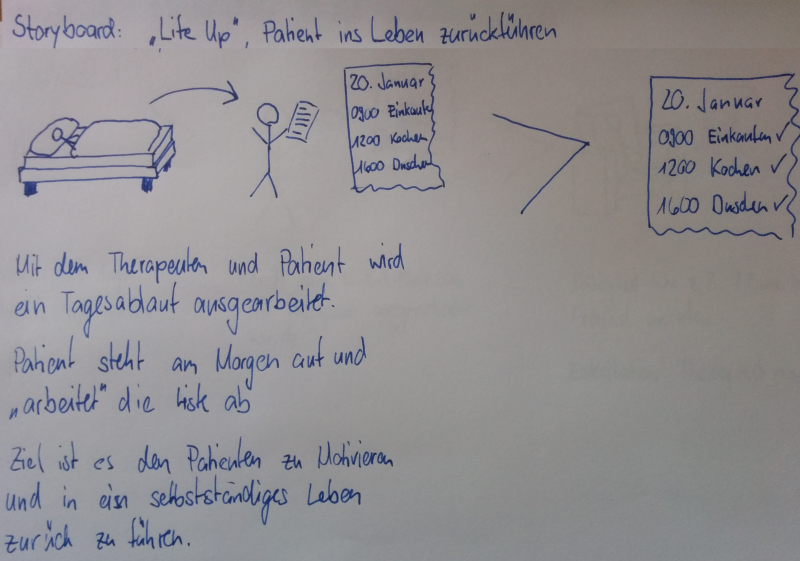 Storyboard: „Life Up", Patient ins Leben zurückführen
20. Januar
0900 Einkaufen
1200 Kochen
1600 Duschen
20. Januar
0900 Einkaufen ✓
1200 Kochen ✓
1600 Duschen ✓
Mit dem Therapeuten und Patient wird
ein Tagesablauf ausgearbeitet.
Patient steht am Morgen auf und
„arbeitet" die Liste ab
Ziel ist es den Patienten zu Motivieren
und in ein selbstständiges Leben
zurück zu führen.